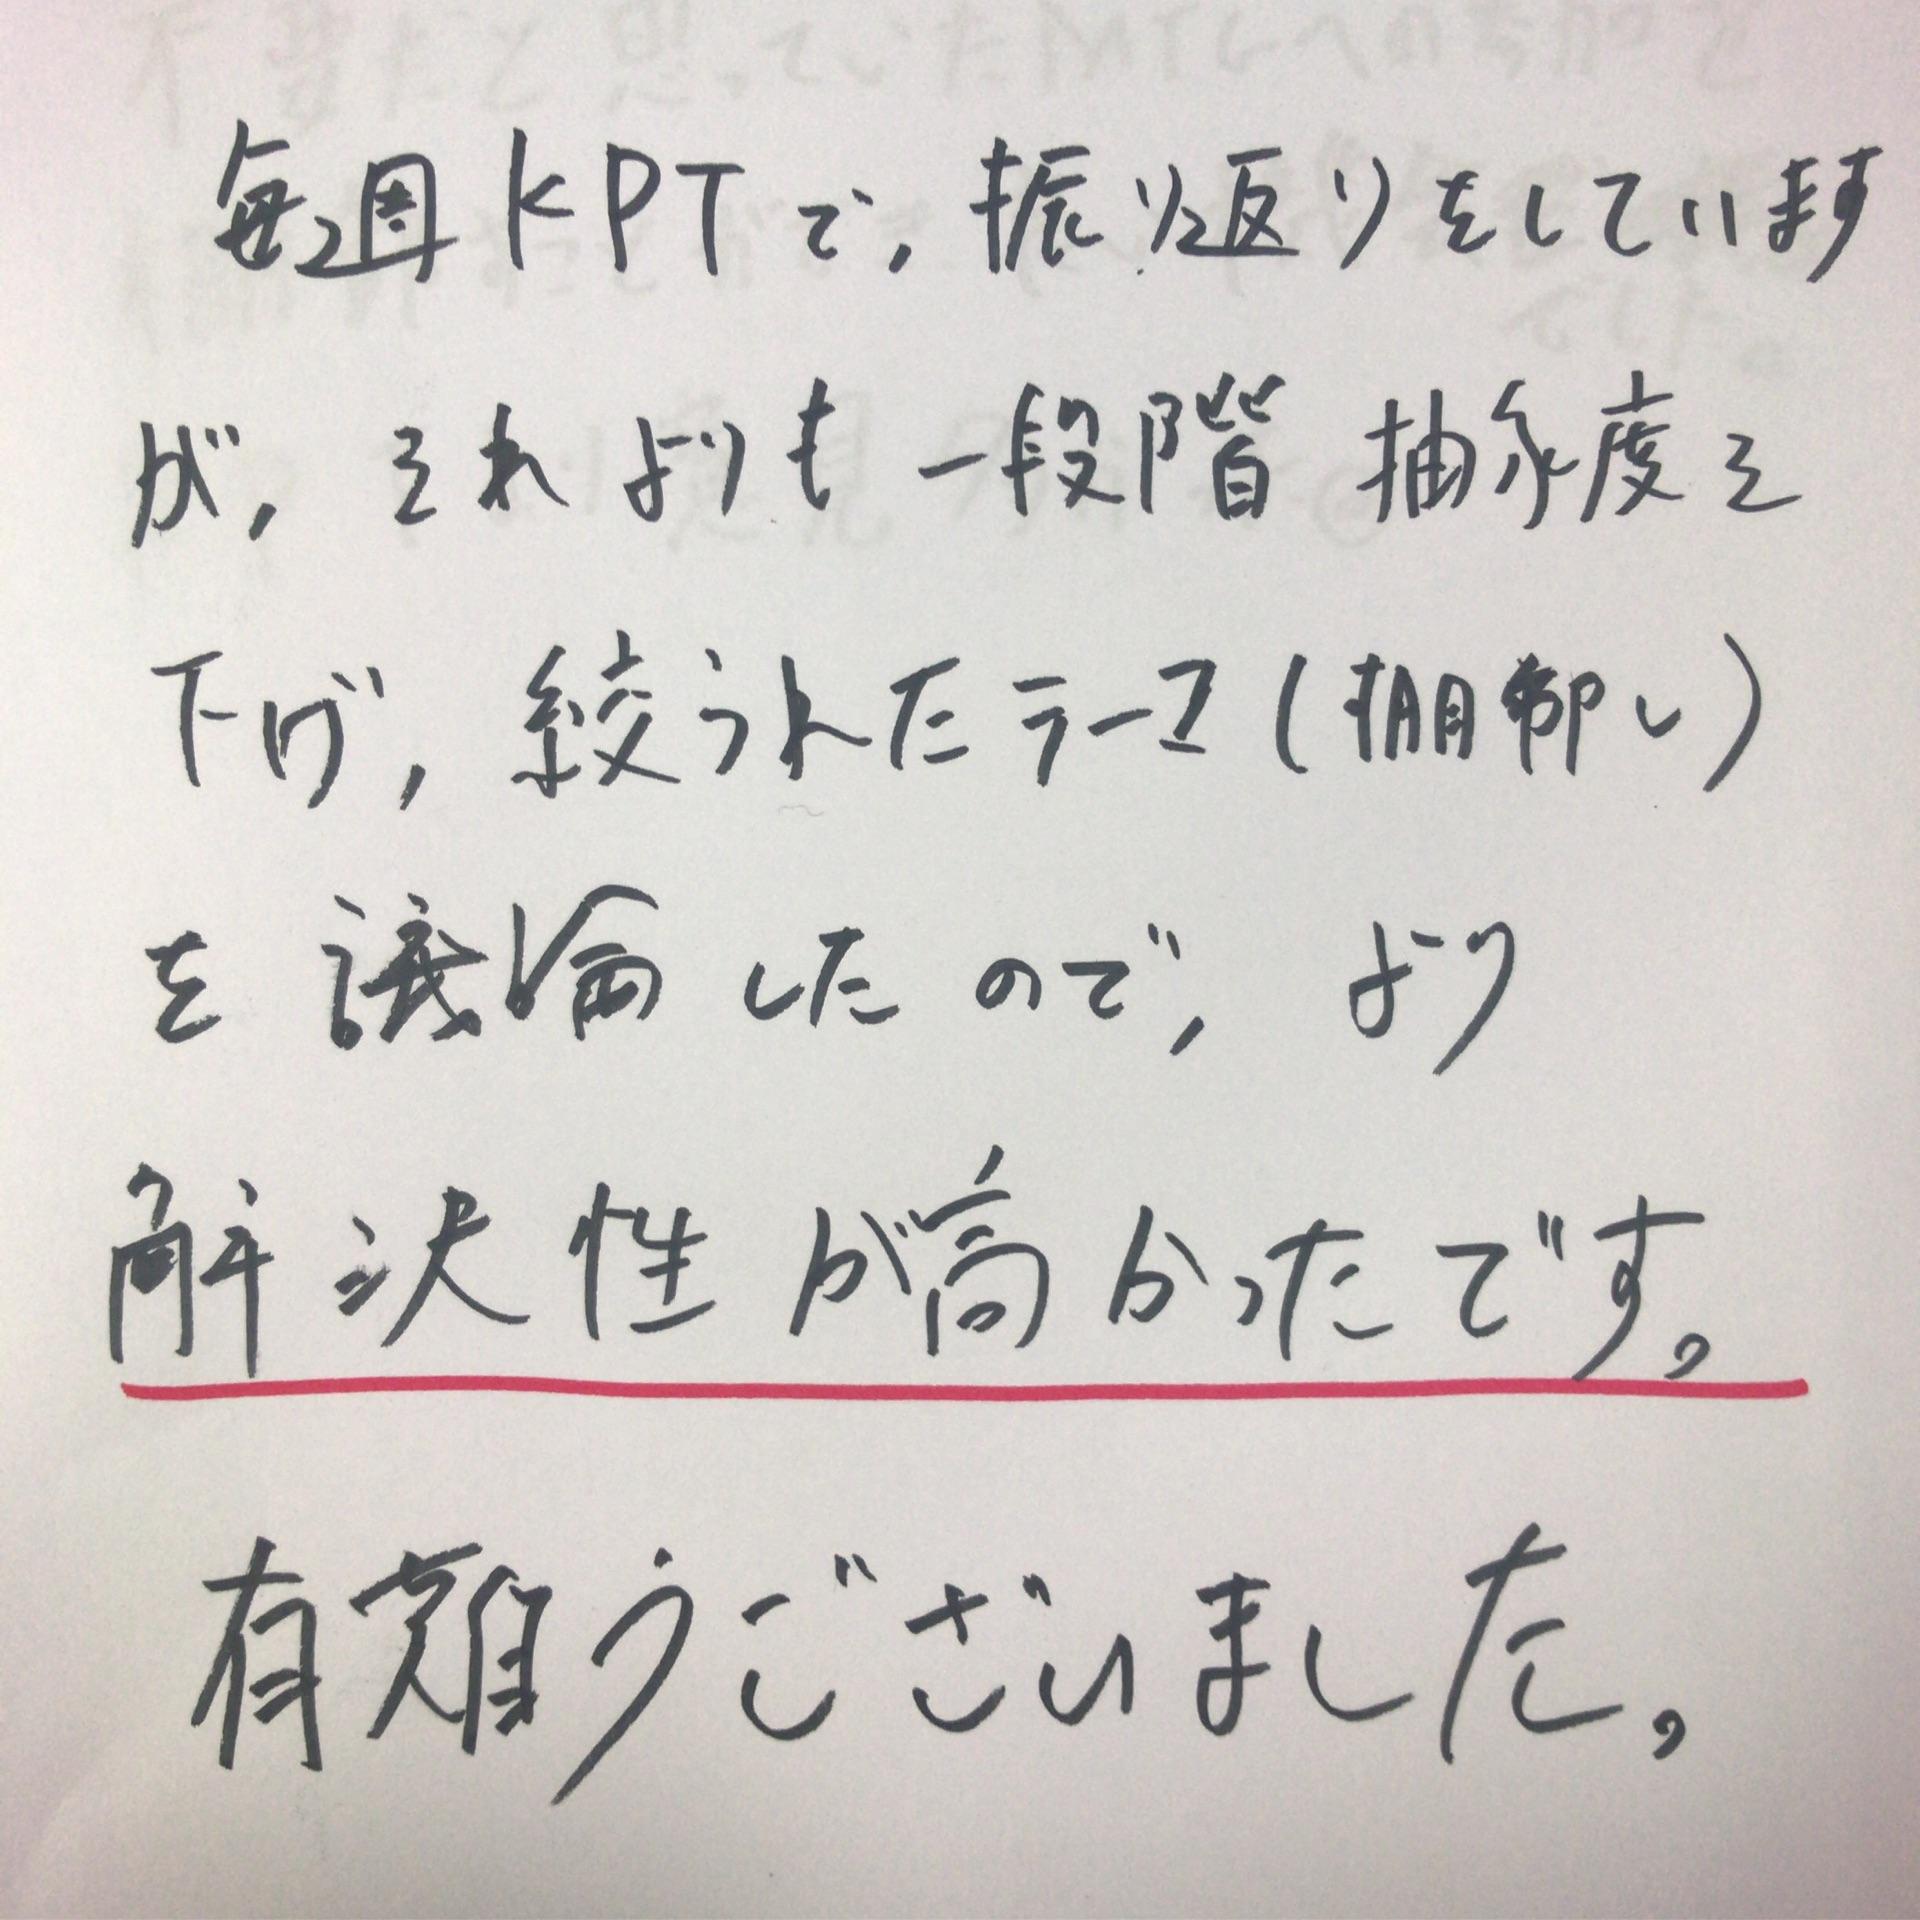 毎週KPTで，振り返りをしています
が，それよりも一段階 抽象度を
下げ，絞られたテーマ(棚卸し)
を議論したので，より
解決性が高かったです。
有難うございました。